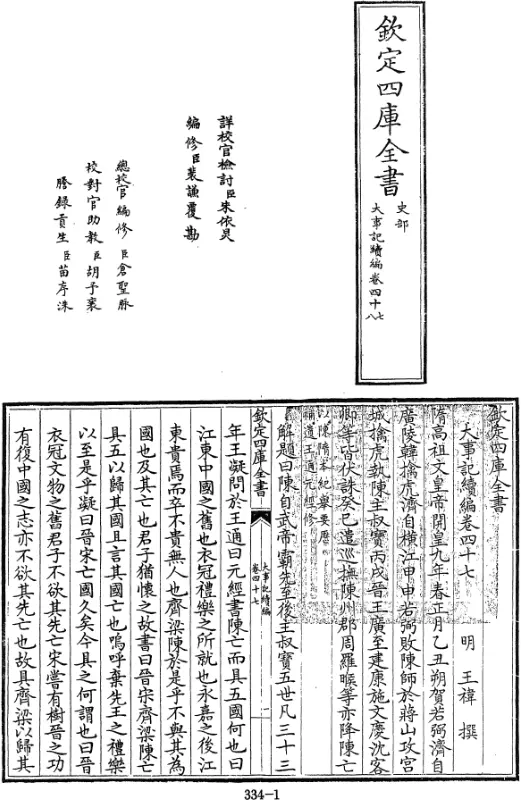 欽定四庫全書
史部
大事記續編卷四十七
八
詳校官檢討臣朱依炅
編修臣裴謙覆勘
總校官編修臣倉聖脉
校對官助教臣胡予襄
謄錄貢生臣苗序洙
欽定四庫全書
大事記續編卷四十七
明 王禕 撰
隋高祖文皇帝開皇九年春正月乙丑朔賀若弼濟自
廣陵韓擒虎濟自橫江甲申若弼敗陳師於蔣山攻宫
城擒虎執陳主叔寶丙戌晉王廣至建康施文慶沈客
卿等皆伏誅癸巳遣巡撫陳州郡周羅㬋等亦降陳亡
以陳隋本紀舉要厯
補道王通元經修
解題曰陳自武帝霸先至後主叔寶五世凡三十三
欽定四庫全書
大事記續編
卷四十七
一
年王凝問於王通曰元經書陳亡而具五國何也曰
江東中國之舊也衣冠禮樂之所就也永嘉之後江
東貴焉而卒不貴無人也齊梁陳於是乎不與其為
國也及其亡也君子猶懷之故書曰晉宋齊梁陳亡
具五以歸其國且言其國亡也嗚呼棄先王之禮樂
以至是乎凝曰晉宋亡國久矣今具之何謂也曰晉
衣冠文物之舊君子不欲其先亡宋嘗有樹晉之功
有復中國之志亦不欲其先亡也故具齊梁以歸其
334-1